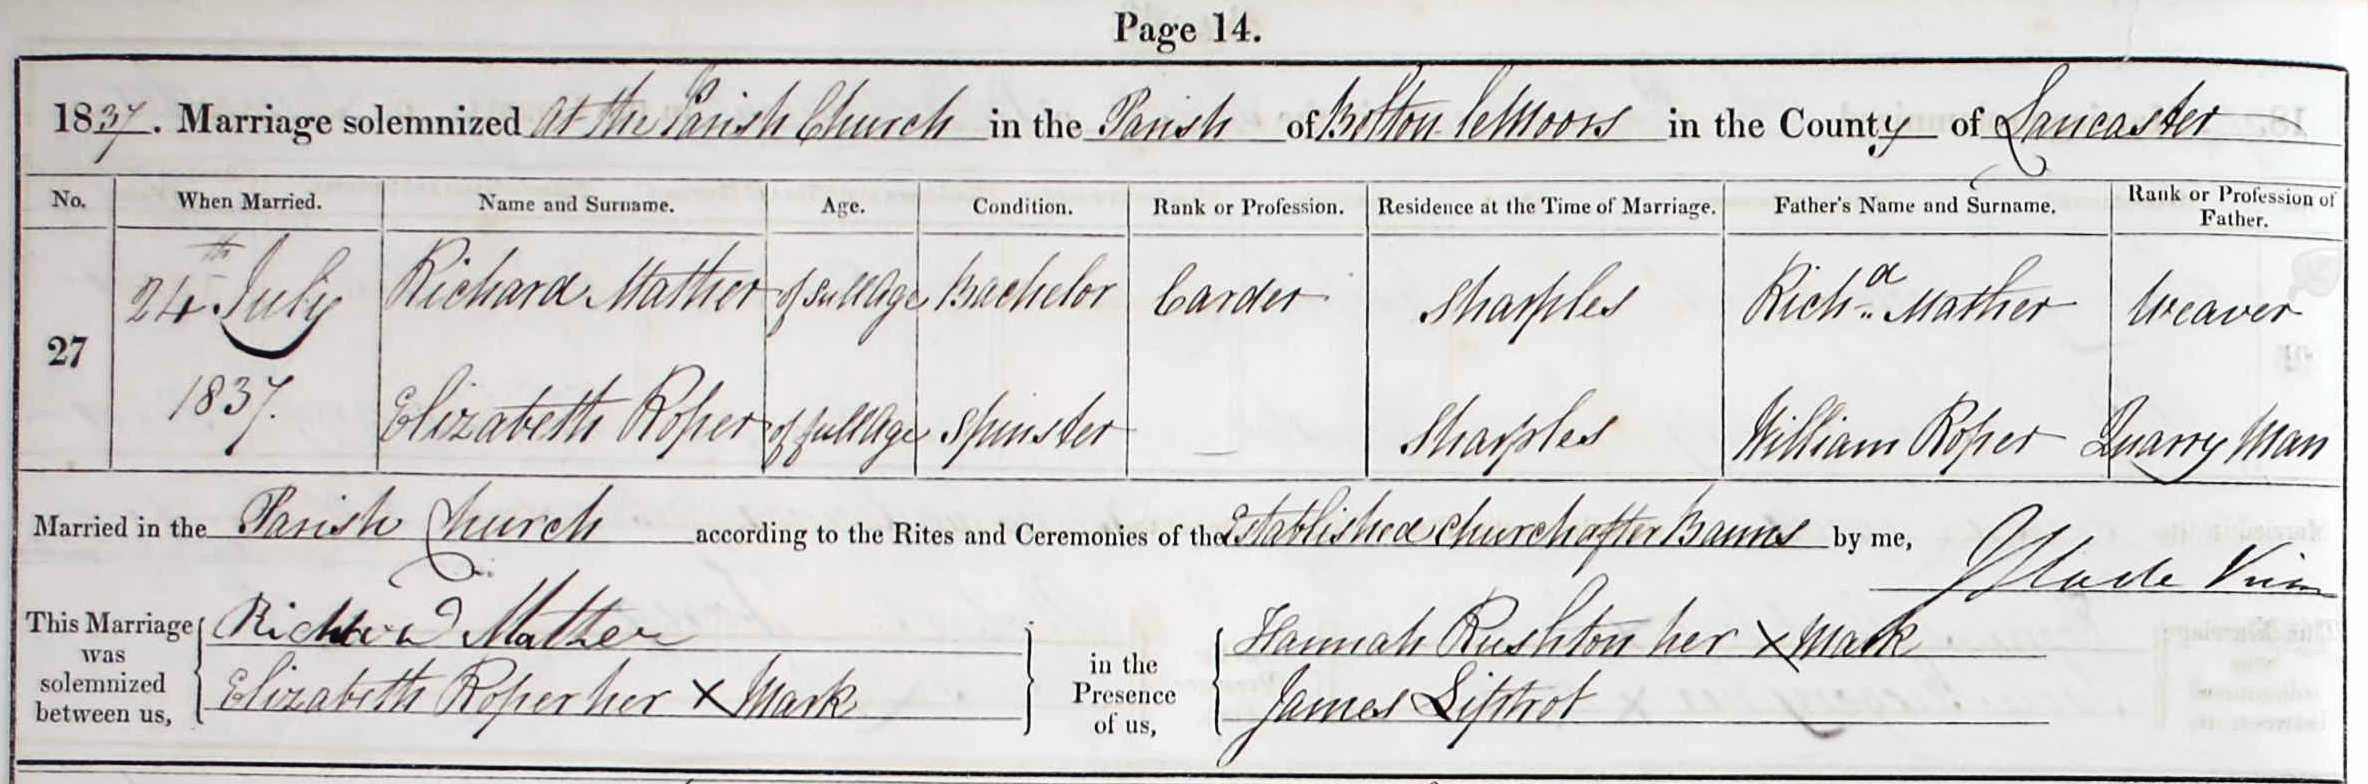 Page 14.
1837. Marriage solemnized at the Parish Church in the Parish of Bolton leMoors in the County of Lancaster
No. When Married. Name and Surname. Age. Condition. Rank or Profession. Residence at the Time of Marriage. Father's Name and Surname. Rank or Profession of Father.
27 24th July 1837. Richard Mather of full Age Bachelor Carder Sharples Richd Mather Weaver
Elizabeth Roper of full Age Spinster — Sharples William Roper Quarry Man
Married in the Parish Church according to the Rites and Ceremonies of the Established Church after Banns by me, J Slade
This Marriage was solemnized between us,
Richard Mather
Elizabeth Roper her X Mark
in the Presence of us,
Hannah Rushton her X Mark
James Liptrot